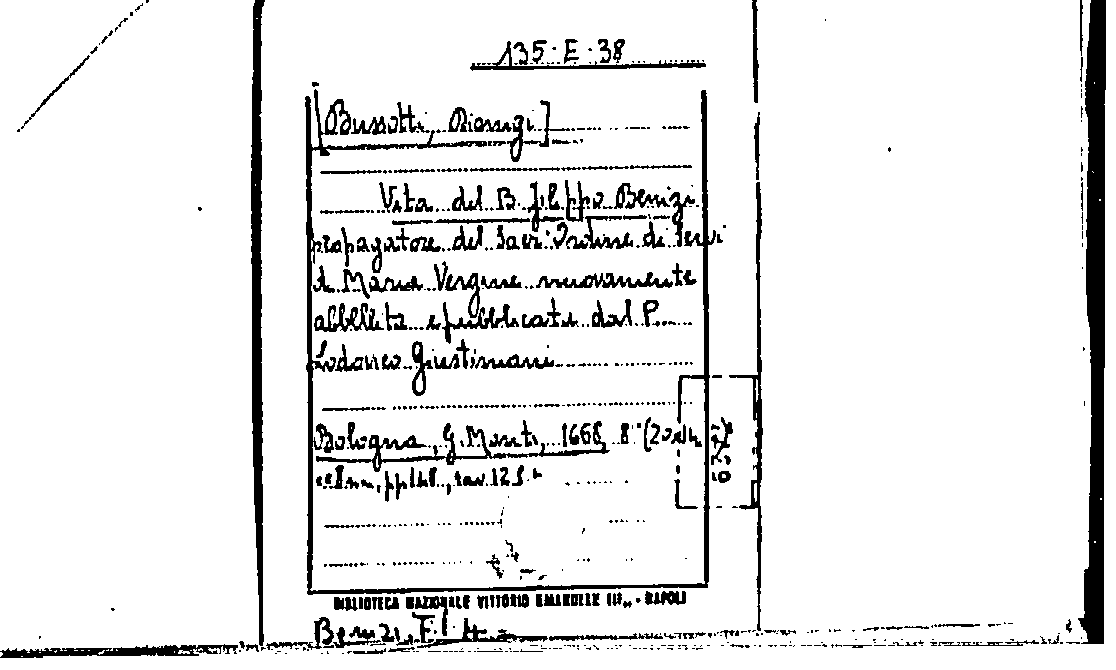 135·E·38
[Bussotti, Dionigi]
Vita del B. Filippo Benizi
propagatore del Sacr: Ordine di Servi
di Maria Vergine nuovamente
abbellita e pubblicata dal P.
Lodovico Giustiniani
Bologna, G. Monti, 1668, 8°
BIBLIOTECA NAZIONALE VITTORIO EMANUELE III,, - NAPOLI